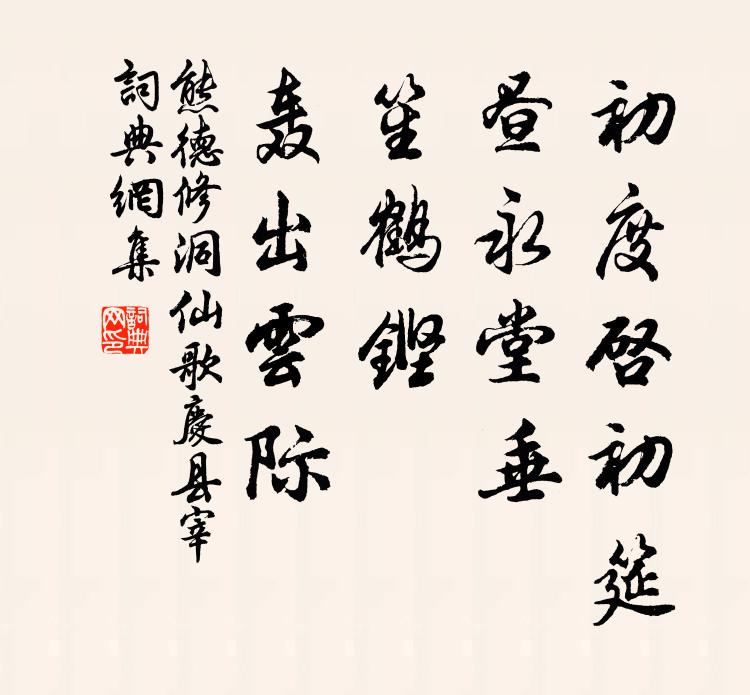 初度启初筵
昼永堂垂
笙鹤鏗
轰出雲际
熊德修洞仙歌慶县宰
詞典網集
詞典网印